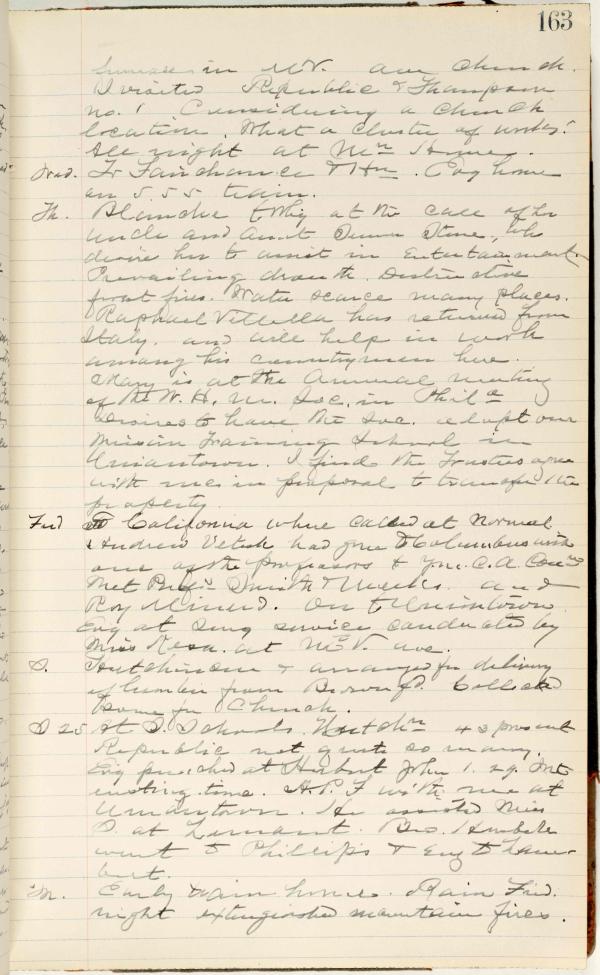 163
in McV. ave Church.
I visited Republic & Thompson
no. 1 Considering a church
location. What a cluster of works!
All night at Mrs
Wed. To Fairchance & Hn. Evg home
on 5.55 train.
Th. Blanche to Whg at the call of her
uncle and aunt Stone, who
desire her to assist in Entertainment.
Prevailing drouth. Destructive
forest fires. Water scarce many places.
Raphael Villella has returned from
Italy. and will help in work
among his countrymen here.
Mary is at the Annual meeting
of the W. H. M. Soc. in Phila
Desires to have the Soc. adopt our
Mission Training School in
Uniontown. I find the Trustees agree
with me in proposal to transfer the
property.
Frid To California where called at Normal
Andrew Vetsek had gone to Columbus with
one of the professors to Y.M.C.A. Conv
Met Profs Smith & Meeks. and
Roy Minerd. On to Uniontown
Evg at song service conducted by
Miss at McV. ave.
S. Hutchinson & arranged for delivery
of lumber from Brownfd. Collected
some for Church.
S 25 At S. Schools. Hutchn 43 present
Republic not quite so many.
Evg preached at Herbert John 1. 29. Int
eresting time. A.P.J with me at
Uniontown. He assisted Miss
D. at Lemont. Bro.
went to Phillips & Evg to
but.
M. Early train home. Rain Frid.
night extinguished mountain fires.